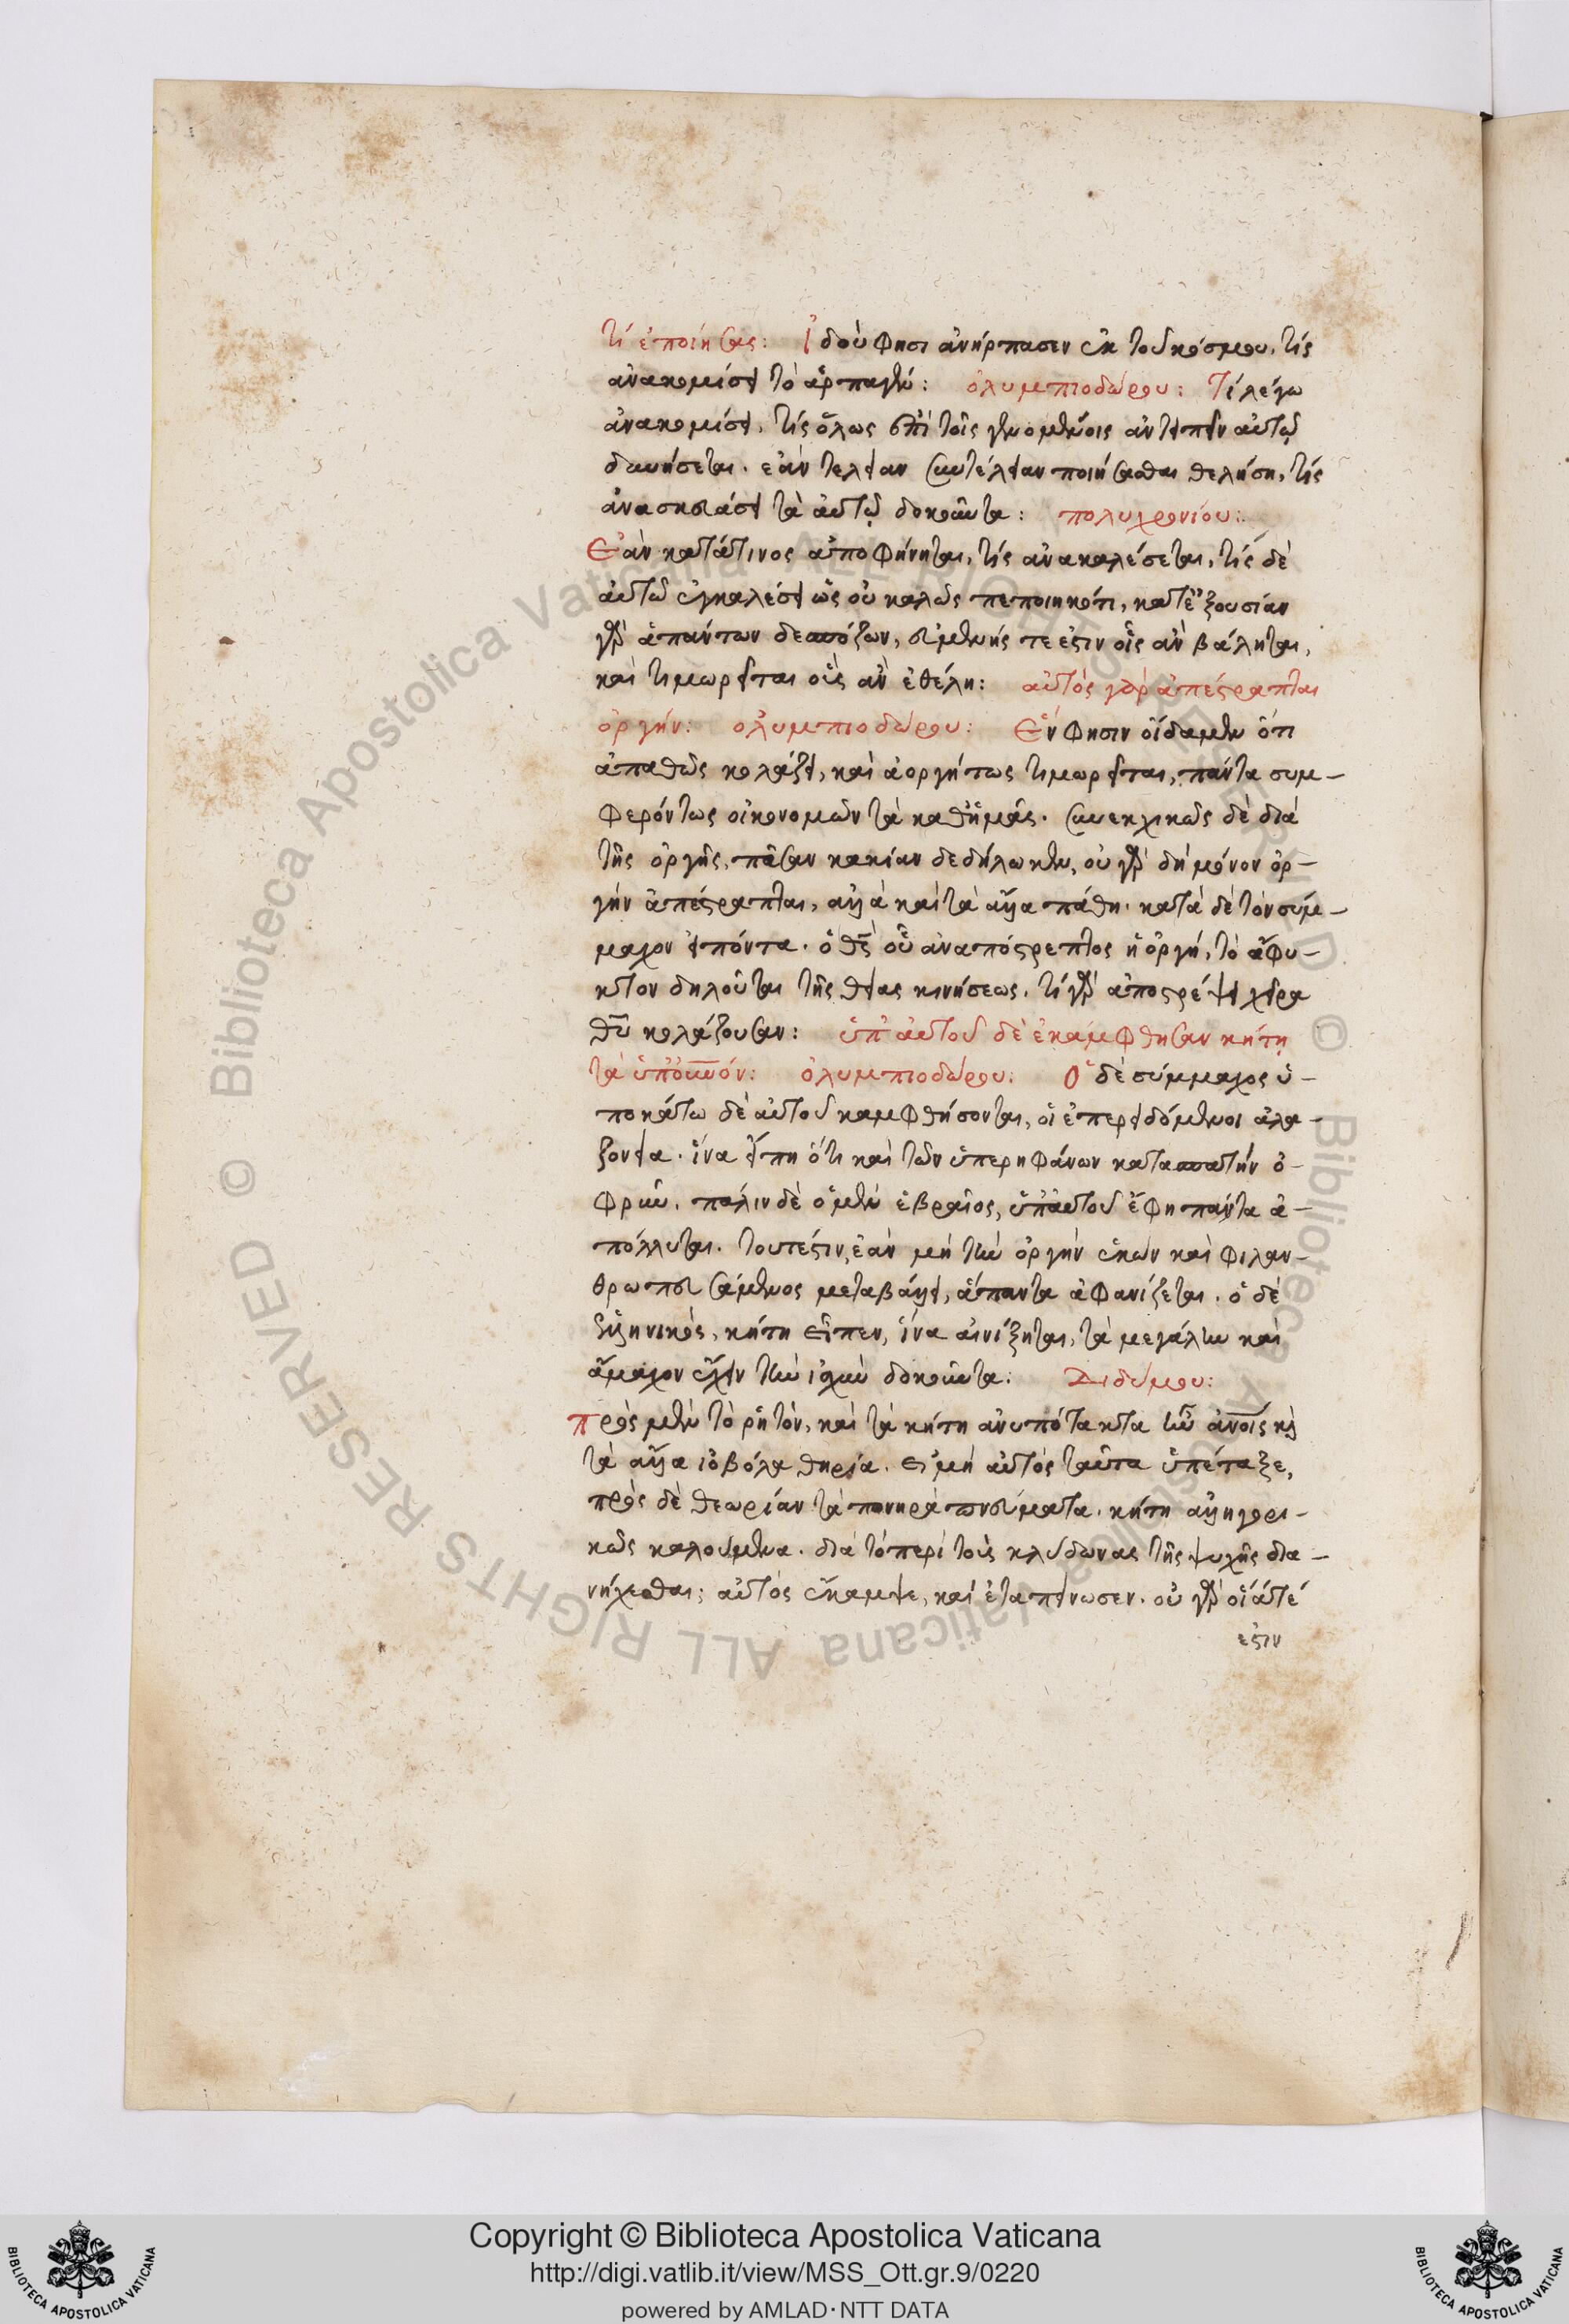 τί ἐποίησας: Ἰδοὺ φησι ἀνήρπασεν ἐκ τοῦ κόσμου, τίς
ἀνακομίσει τὸ ἁρπαγέν: ὀλυμπιοδώρου: Τί λέγω
ἀνακομίσει, τίς ὅλως ἐπὶ τοῖς γενομένοις ἀντειπεῖν αὐτῷ
δυνήσεται. ἐὰν τελείαν συντέλειαν ποιήσασθαι θελήση, τίς
ἀνασκευάσει τὰ αὐτῷ δοκοῦντα: πολυχρονίου:
Ἐὰν κατάτινος ἀποφήνηται, τίς ἀνακαλέσεται, τίς δὲ
αὐτῶ ἐγκαλέσει ὡς οὐ καλῶς πεποιηκότι, κατ' ἐξουσίαν
γὰρ ἁπάντων δεσπόζων, εὐμενής τε ἐστιν οἷς ἂν βάληται,
καὶ τιμωρεῖται οὓς ἂν ἐθέλη: αὐτὸς γὰρ ἀπέστραπται
ὀργήν: ὀλυμπιοδώρου: Ἕν φησιν οἴδαμεν ὅτι
ἀπαθῶς κολάζει, καὶ ἀοργήτως τιμωρεῖται, πάντα συμ-
φερόντως οἰκονομῶν τὰ καθἡμᾶς. συνεκχικῶς δὲ διὰ
τῆς ὀργῆς, πᾶσαν κακίαν δεδήλωκεν, οὐ γὰρ δὴ μόνον ὀρ-
γὴν ἀπέστραπται, ἀλλὰ καὶ τὰ ἄλλα πάθη. κατὰ δὲ τὸν σύμ-
μαχον εἰπόντα. ὁ θς οὗ ἀναπόστρεπτος ἡ ὀργή, τὸ ἄφυ-
κτον δηλοῦται τῆς θείας κινήσεως. τί γὰρ ἀποστρέψει χεῖρα
θυ κολάζουσαν: ὑπ' αὐτοῦ δὲ ἐκάμφθησαν κήτη
τὰ ὑπ' οὐνόν: ὀλυμπιοδώρου: Ὁ δὲ σύμμαχος ὑ-
ποκάτω δὲ αὐτοῦ καμφθήσονται, οἱ ἐπερειδόμενοι ἀλα-
ζονεία. ἵνα εἴπη ὅτι καὶ τῶν ὑπερηφάνων κατασπατὴν ὀ-
φρὺν. πάλιν δὲ ὁ μὲν ἑβραῖος, ὑπ' αὐτοῦ ἔφη πάντα ἀ-
πόλλυται. τουτέστιν, ἐὰν μὴ τὴν ὀργὴν ἑκὼν καὶ φιλαν-
θρωπευσάμενος μεταβάλλει, ἅπαντα ἀφανίζεται. ὁ δὲ
ἑλληνικός, κήτη εἶπεν, ἵνα αἰνίξηται, τὰ μεγάλην καὶ
ἄμαχον ἔχειν τὴν ἰσχὺν δοκοῦντα: Διδύμου:
Πρὸς μὲν τὸ ῥητόν, καὶ τὰ κήτη ἀνυπότακτα ἦν ἀνοις καὶ
τὰ ἄλλα ἰοβόλα θηρία. εἰ μὴ αὐτὸς ταῦτα ὑπέταξε,
πρὸς δὲ θεωρίαν τὰ πονηρὰ πνεύματα. κήτη ἀλληγορι-
κῶς καλούμενα. διὰ τὸ περὶ τοὺς κλύδωνας τῆς ψυχῆς δια-
νήχεσθαι; αὐτὸς ἔκαμψε, καὶ ἐταπείνωσεν. οὐ γὰρ οἷά τέ
ἐστιν
Copyright © Biblioteca Apostolica Vaticana
http://digi.vatlib.it/view/MSS_Ott.gr.9/0220
powered by AMLAD·NTT DATA